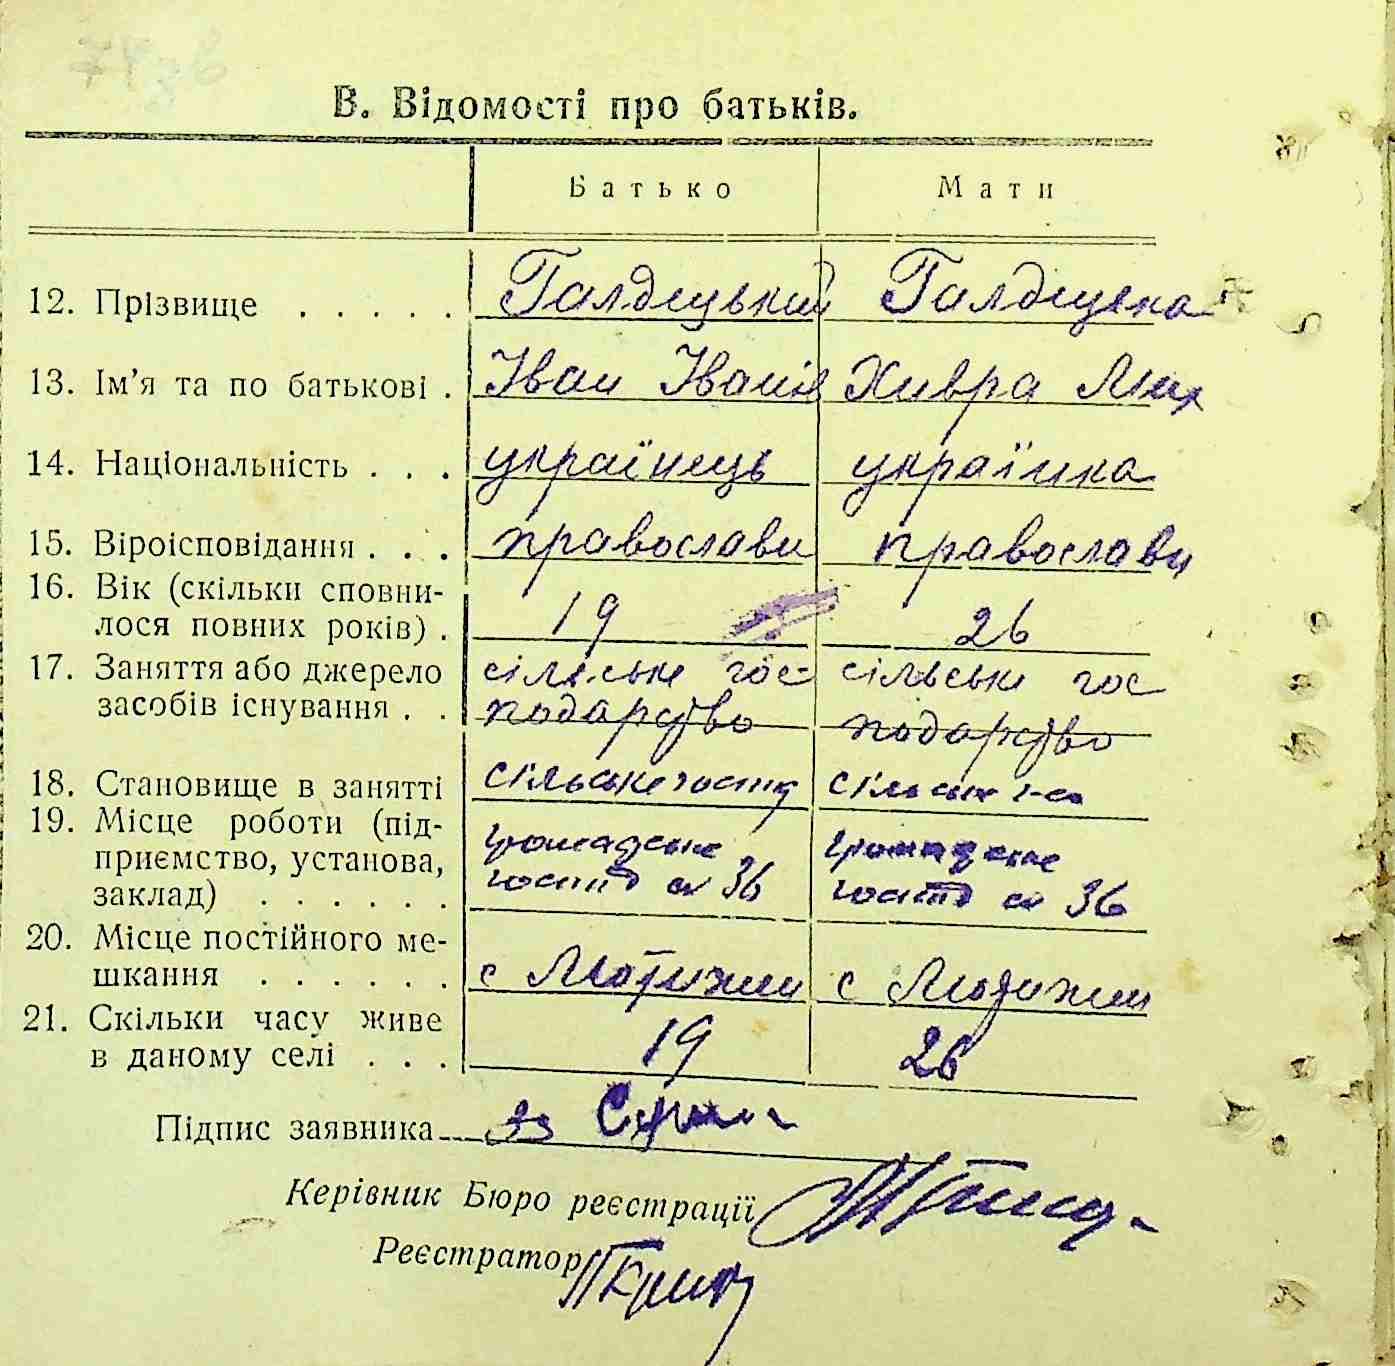 В. Відомості про батьків.
Батько Мати
12. Прізвище . . . . . Галдецький Галдецька
13. Ім’я та по батькові . Іван Іванів Хивра Мих
14. Національність . . . українець українка
15. Віроісповідання . . . православн православн
16. Вік (скільки сповни-
лося повних років) . 19 26
17. Заняття або джерело сільське гос- сільське гос
засобів існування . . подарство подарство
18. Становище в занятті сільське госпд сільське г-со
19. Місце роботи (під- громадське громадське
приємство, установа, госпд 36 госпд 36
заклад) . . . . . .
20. Місце постійного ме-
шкання . . . . . . с Мотижин с Мотижин
21. Скільки часу живе
в даному селі . . . 19 26
Підпис заявника
Керівник Бюро реєстрації
Реєстратор